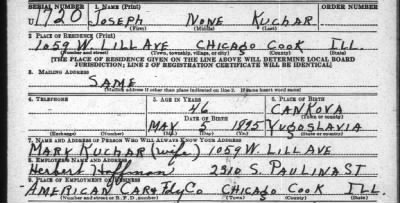 SERIAL NUMBER 1. NAME (Print) ORDER NUMBER
U1720 JOSEPH NONE KUCHAR
(First) (Middle) (Last)
2. PLACE OF RESIDENCE (Print)
1059 W. LILL AVE CHICAGO COOK ILL.
(Number and street) (Town, township, village, or city) (County) (State)
[THE PLACE OF RESIDENCE GIVEN ON THE LINE ABOVE WILL DETERMINE LOCAL BOARD
JURISDICTION; LINE 2 OF REGISTRATION CERTIFICATE WILL BE IDENTICAL]
3. MAILING ADDRESS
SAME
[Mailing address if other than place indicated on line 2. If same insert word same]
4. TELEPHONE 5. AGE IN YEARS 6. PLACE OF BIRTH
46 CANKOVA
DATE OF BIRTH (Town or county)
MAY 5 1895 YUGOSLAVIA
(Exchange) (Number) (Mo.) (Day) (Yr.) (State or country)
7. NAME AND ADDRESS OF PERSON WHO WILL ALWAYS KNOW YOUR ADDRESS
MARY KUCHAR (wife) 1059 W. LILL AVE
8. EMPLOYER'S NAME AND ADDRESS
Herbert Hoffman 2310 S. PAULINA ST
9. PLACE OF EMPLOYMENT OR BUSINESS
AMERICAN CAR & Fdy Co CHICAGO COOK ILL.
(Number and street or R. F. D. number) (Town) (County) (State)